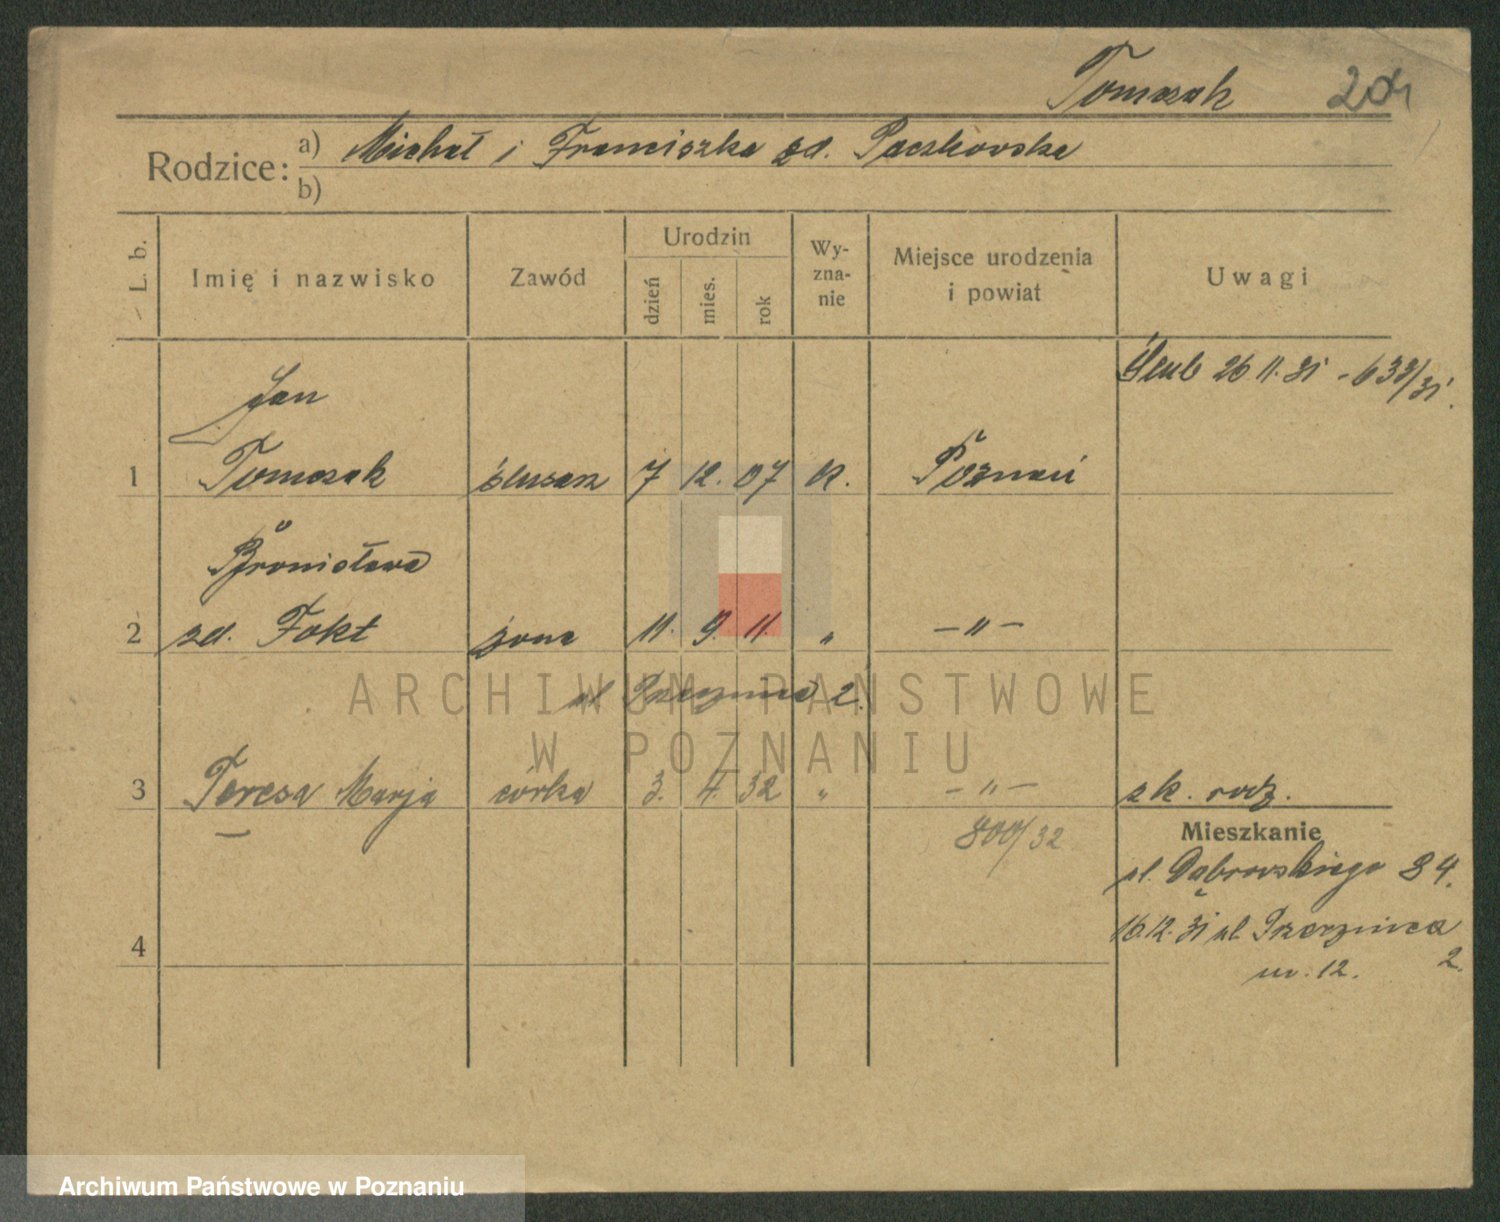 Tomczak 204
Rodzice: a) Michał i Franciszka zd. Paczkowska
b)
L. b.
Imię i nazwisko
Zawód
Urodzin
dzień
mies.
rok
Wy-
zna-
nie
Miejsce urodzenia
i powiat
Uwagi
Ślub 26 11. 31 - 633/31.
Jan
1 Tomczak ślusarz 7 12. 07 k. Poznań
Bronisława
2 zd. Fokt żona 11. 9. 11. " — " —
ul 2.
3 Teresa Marja córka 3. 4. 32 " — " — zk. rodz.
800/32
Mieszkanie
ul. Dąbrowskiego 84.
16.12.31 ul
m. 12. 2.
4
ARCHIWUM PAŃSTWOWE
W POZNANIU
Archiwum Państwowe w Poznaniu